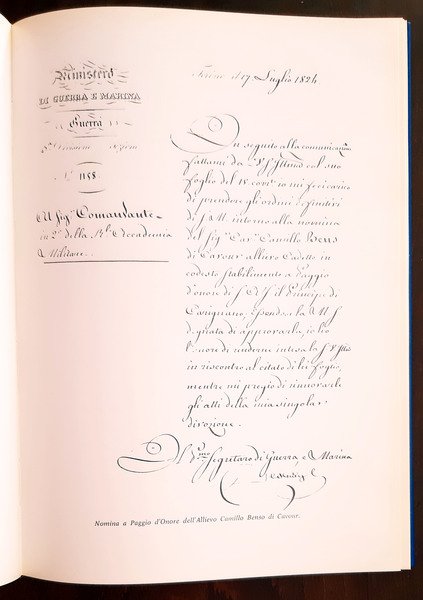 Ministero
DI GUERRA E MARINA
Guerra
N° 1158
Al Sig. Comandante
in 2° della Rle Accademia
Militare
Torino il 17 Luglio 1824
In seguito alla comunicazione
fattami da V. S. Illma col suo
foglio del 15 corrte mi feci carico
di prendere gli ordini definitivi
di S. M. intorno alla nomina
del Sig. Cavr Camillo Bens
di Cavour allievo Cadetto in
codesto stabilimento a Paggio
d'onore di S. A. S. il Principe di
Carignano, essendosi la M. S.
degnata di approvarla, io ho
l'onore di renderne intesa la S. V. Illma
in riscontro al citato di lei foglio,
mentre mi pregio di rinnovarle
gli atti della mia singolar
divozione.
Il Primo Segretario di Guerra, e Marina
Nomina a Paggio d'Onore dell'Allievo Camillo Benso di Cavour.